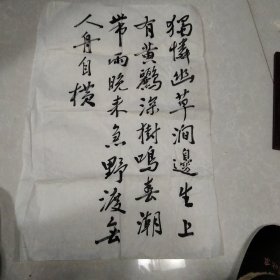 獨憐幽草澗邊生上
有黃鸝深樹鳴春潮
帶雨晚来急野渡無
人舟自橫